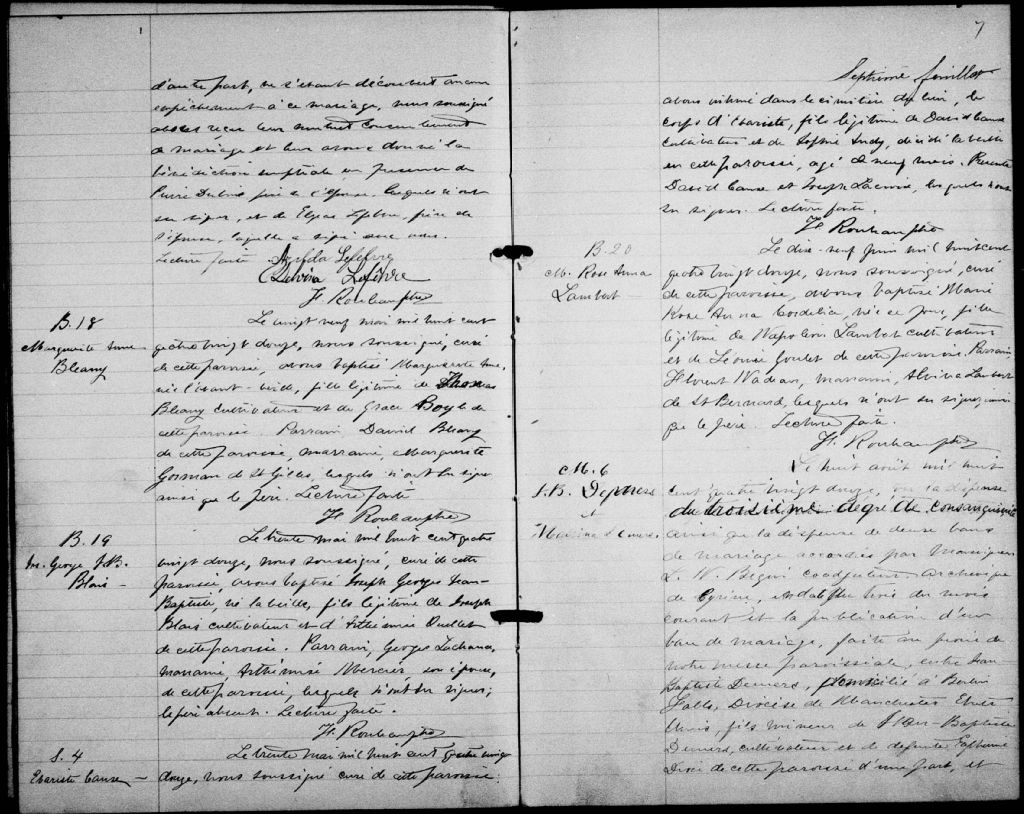 d'autre part, ne s'étant découvert aucun
empêchement à ce mariage, nous soussigné
avons reçu leur mutuel consentement
de mariage et leur avons donné la
bénédiction nuptiale en présence de
Pierre Dubois père de l'époux, lesquels n'ont
su signer, et de Elzear Lefebvre, père de
l'épouse, laquelle a signé avec nous.
Lecture faite.
Lefebvre
Lefebvre
H. Rouleau ptre
B. 18
Marguerite Anne
Bleany
Le vingt neuf mai mil huit cent
quatre vingt douze, nous soussigné, curé
de cette paroisse, avons baptisé Marguerite Anne,
née l'avant-veille, fille légitime de Thomas
Bleany cultivateur et de Grace Boyle de
cette paroisse. Parrain, Daniel Bleany
de cette paroisse, marraine, Marguerite
Gorman de St Gilles, lesquels n'ont su signer
ainsi que le père. Lecture faite
H. Rouleau ptre
B. 19
Jos. George J. B.
Blais
Le trente mai mil huit cent quatre
vingt douze, nous soussigné, curé de cette
paroisse, avons baptisé Joseph Georges Jean-
Baptiste, né la veille, fils légitime de Joseph
Blais cultivateur et d'Arthémise Ouellet
de cette paroisse. Parrain, Georges Lachance,
marraine, Arthémise Mercier, son épouse,
de cette paroisse, lesquels n'ont su signer;
le père absent. Lecture faite.
H. Rouleau ptre
S. 4
Evariste
Le trente mai mil huit cent quatre vingt
douze, nous soussigné curé de cette paroisse
7
Septième feuillet
avons inhumé dans le cimetière du lieu, le
corps d'Evariste, fils légitime de David
cultivateur et de Sophie, décédé la veille
en cette paroisse, agé de neuf mois. Présents
David et Joseph Lacroix, lesquels n'ont
su signer. Lecture faite.
H. Rouleau ptre
B. 20
M. Rose Anna
Lambert
Le dix-neuf juin mil huit cent
quatre vingt douze, nous soussigné, curé
de cette paroisse, avons baptisé Marie
Rose Anna Cordelia, née ce jour, fille
légitime de Napoléon Lambert cultivateur
et de Léonie Goulet de cette paroisse. Parrain,
Florent Nadeau, marraine, Alvina Lambert
de St Bernard, lesquels n'ont su signer, ainsi
que le père. Lecture faite.
H. Rouleau ptre
M. 6
J. B. Demers
&
Le huit août mil huit
cent quatre vingt douze, vu la dispense
du troisième degré de consanguinité
ainsi que la dispense de deux bans
de mariage accordés par Monseigneur
L. N. Bégin coadjuteur. Archevêque
de Cyrène, en date du trois du mois
courant et la publication d'un
ban de mariage, faite au prône de
notre messe paroissiale, entre Jean-
Baptiste Demers, domicilié à Berlin
Falls, Diocèse de Manchester Etats
Unis, fils mineur de Jean-Baptiste
Demers, cultivateur et de défunte
de cette paroisse d'une part, et